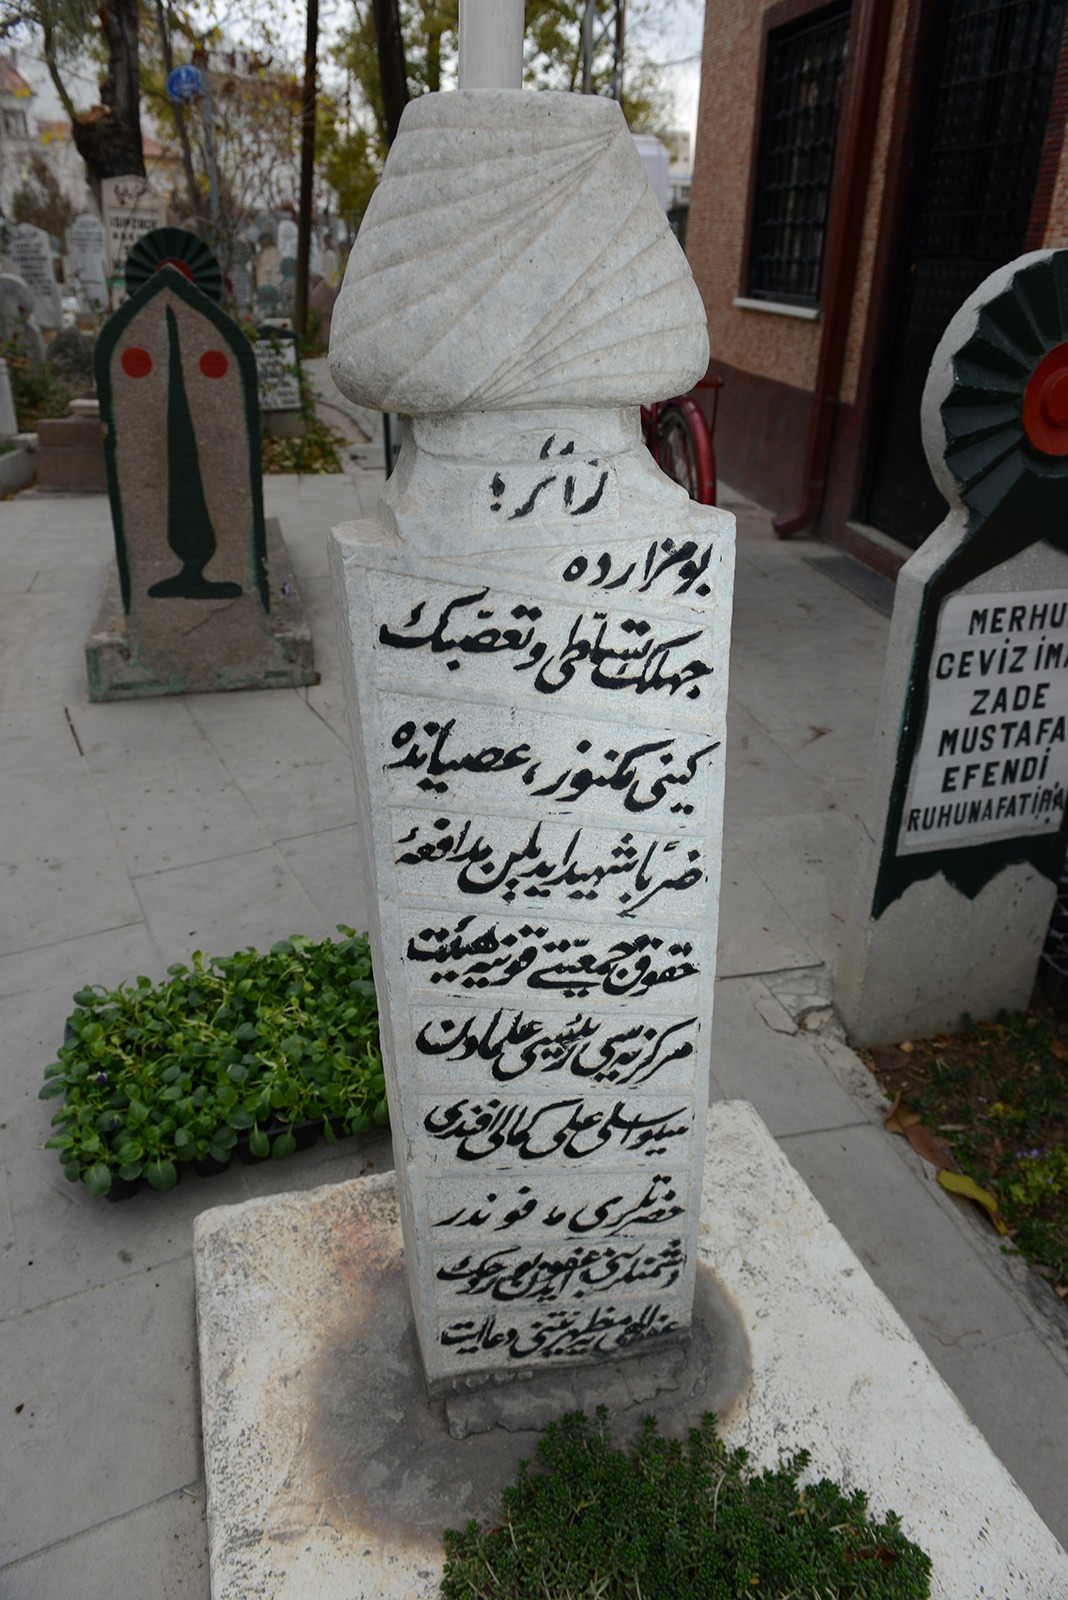 زائر!
بو مزارده
جهلك تسلّطی و تعصّبك
كینی نكنوز، عصیانده
ضربًا شهید ایدیلین مدافعۀ
حقوق جمعیّتی قونیه هیئت
مركزیه سی رئیسی علمادن
سیواسلی علی كمالی افندی
حضرتلری مدفوندر
دشمنلرینی عفو ایدن بو روحك
عفو الهی یه مظهریتنی دعا ایت
MERHU
CEVİZ İMA
ZADE
MUSTAFA
EFENDİ
RUHUNA FATİHA